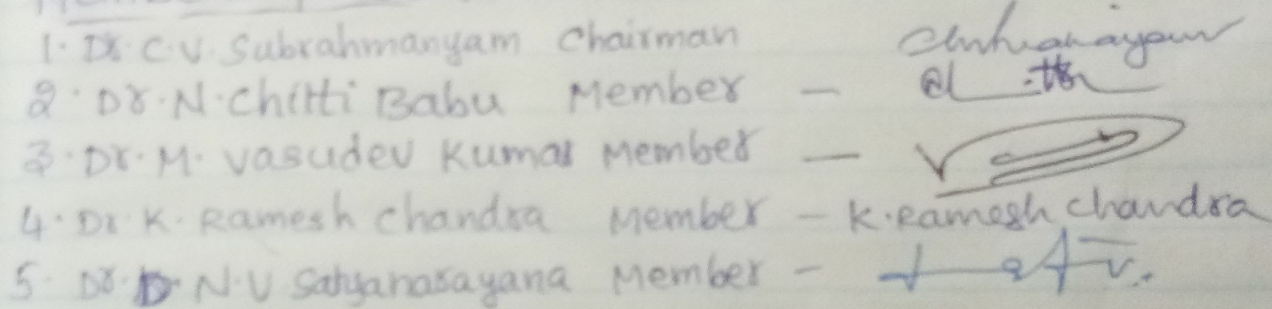 1. Dr. C.V. Subrahmanyam Chairman
2. Dr. N. Chitti Babu Member –
3. Dr. M. Vasudev Kumar Member –
4. Dr K. Ramesh Chandra Member – K. Ramesh Chandra
5. Dr. D. N.V Satyanarayana Member –